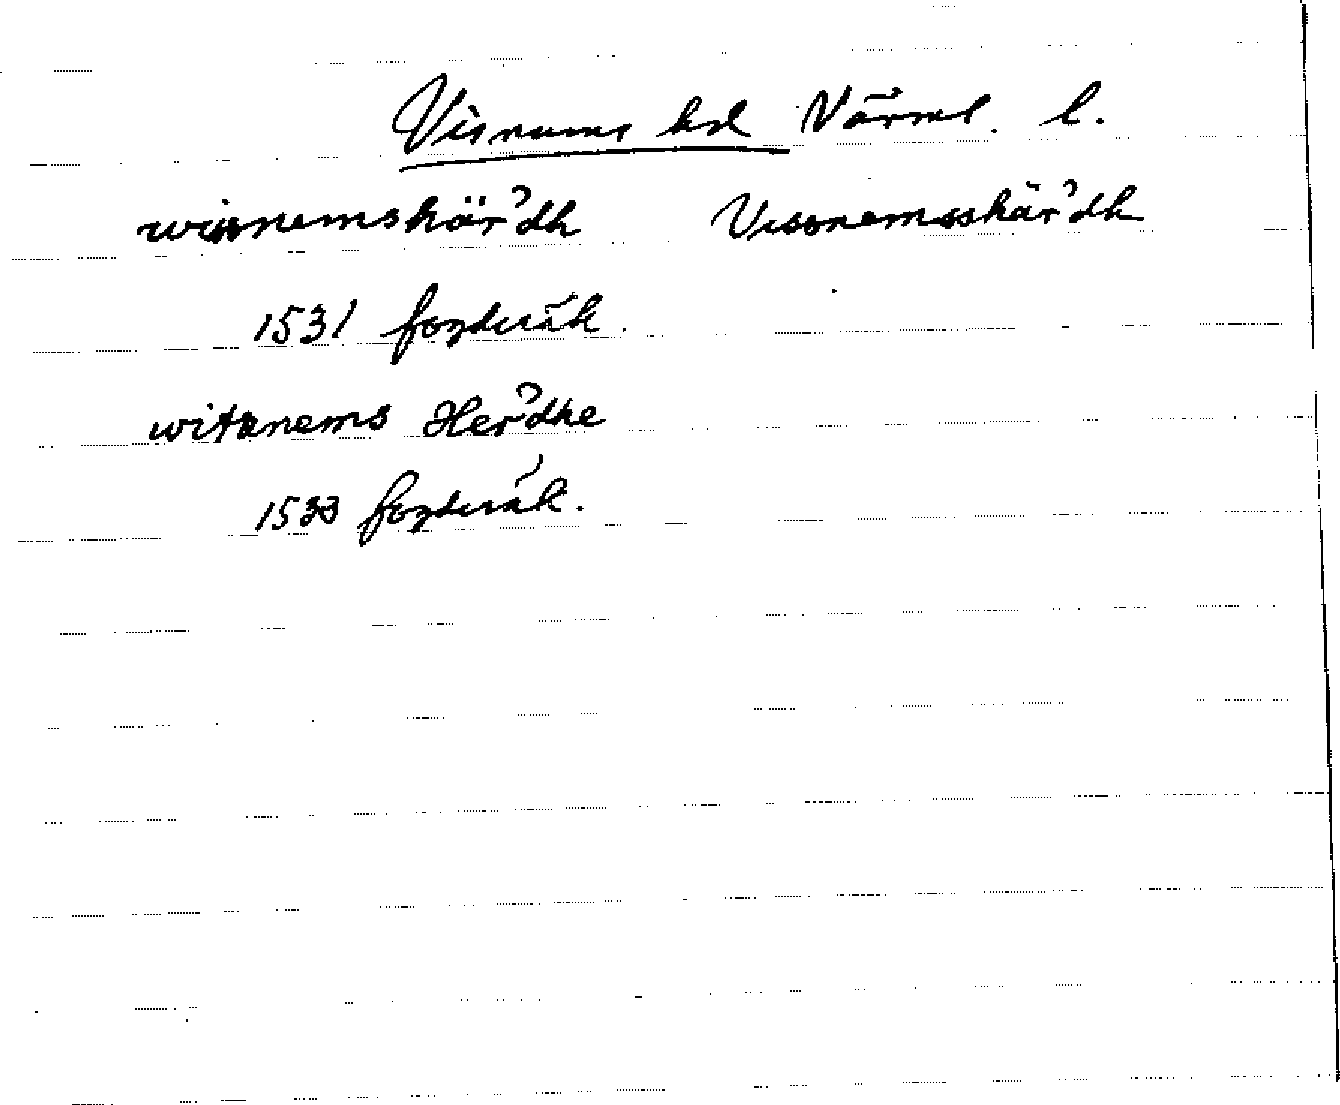 Visnums hd Värml. l.
wisnemshär'dh Vissnemsshär'dh
1531 fogderäk.
witznems Her'dhe
1533 fogderäk.